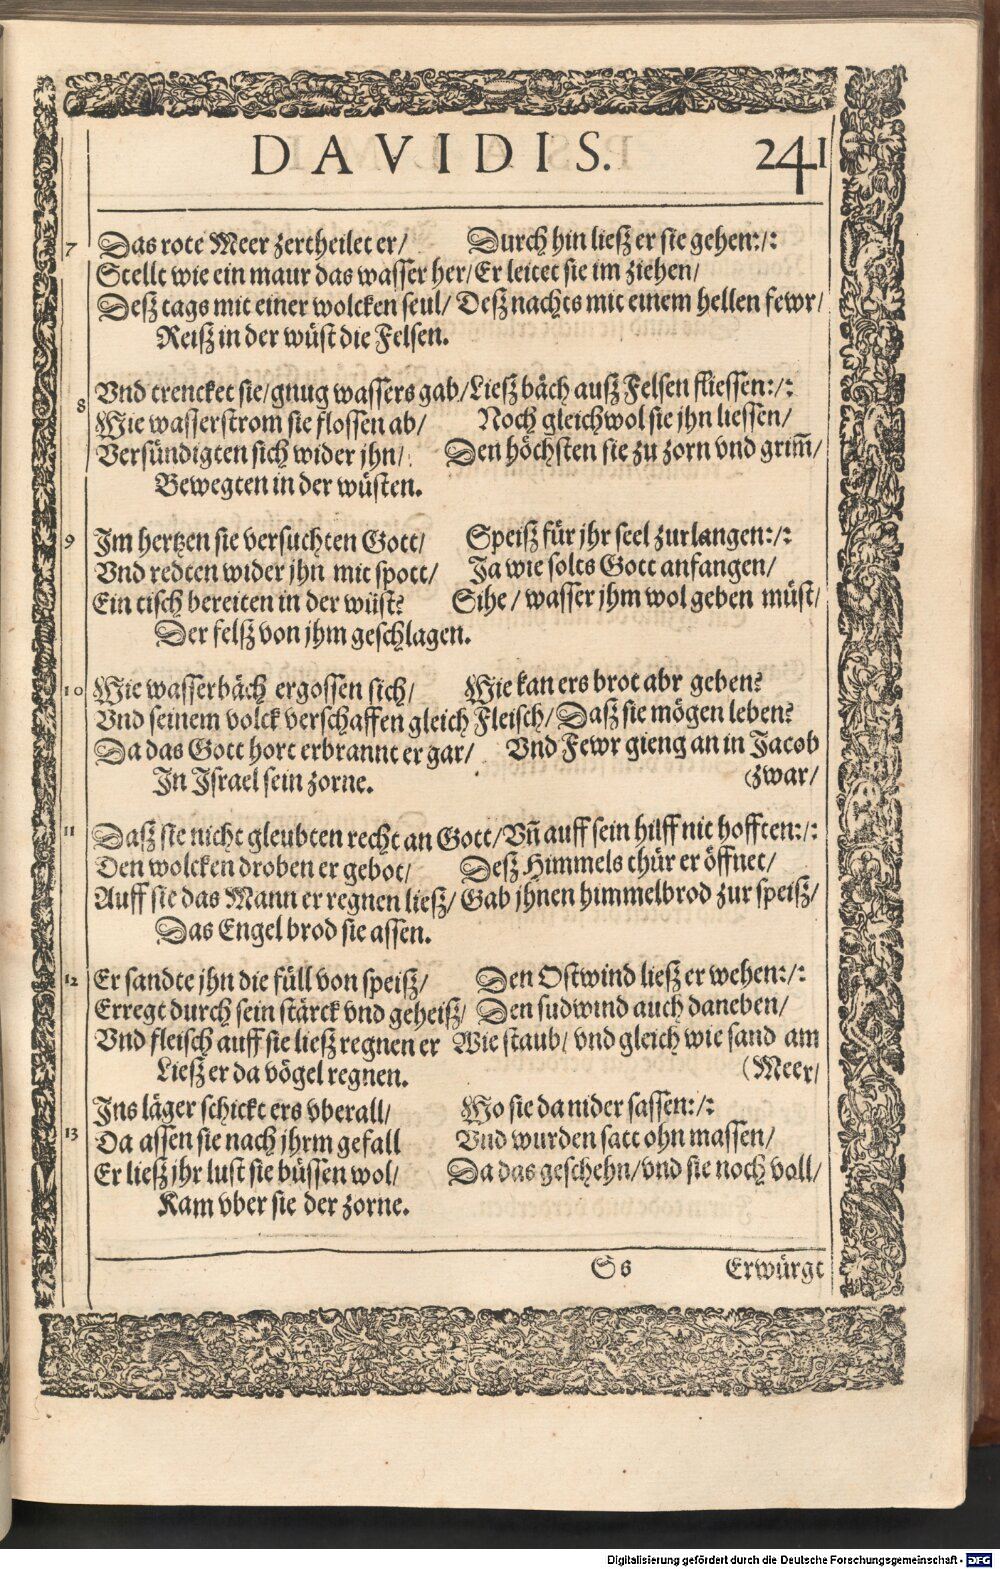 DAVIDIS. 241
7 Das rote Meer zertheilet er/ Durch hin ließ er sie gehen:/:
Stellt wie ein maur das wasser her/ Er leitet sie im ziehen/
Deß tags mit einer wolcken seul/ Deß nachts mit einem hellen fewr/
Reiß in der wüst die Felsen.
8 Vnd trencket sie/ gnug wassers gab/ Ließ bäch auß Felsen fliessen:/:
Wie wasserstrom sie flossen ab/ Noch gleichwol sie jhn liessen/
Versündigten sich wider jhn/ Den höchsten sie zu zorn vnd grim̃/
Bewegten in der wüsten.
9 Im hertzen sie versuchten Gott/ Speiß für jhr seel zurlangen:/:
Vnd redten wider jhn mit spott/ Ja wie solts Gott anfangen/
Ein tisch bereiten in der wüst? Sihe/ wasser jhm wol geben müst/
Der felß von jhm geschlagen.
10 Wie wasserbäch ergossen sich/ Wie kan ers brot abr geben?
Vnd seinem volck verschaffen gleich Fleisch/ Daß sie mögen leben?
Da das Gott hort erbrannt er gar/ Vnd Fewr gieng an in Jacob
In Israel sein zorne. (zwar/
11 Daß sie nicht gleubten recht an Gott/ Vñ auff sein hilff nit hofften:/:
Den wolcken droben er gebot/ Deß Himmels thür er öffnet/
Auff sie das Mann er regnen ließ/ Gab jhnen himmelbrod zur speiß/
Das Engel brod sie assen.
12 Er sandte jhn die füll von speiß/ Den Ostwind ließ er wehen:/:
Erregt durch sein stärck vnd geheiß/ Den sudwind auch daneben/
Vnd fleisch auff sie ließ regnen er Wie staub/ vnd gleich wie sand am
Ließ er da vögel regnen. (Meer/
Ins läger schickt ers vberall/ Wo sie da nider sassen:/:
13 Da assen sie nach jhrm gefall Vnd wurden satt ohn massen/
Er ließ jhr lust sie büssen wol/ Da das geschehn/ vnd sie noch voll/
Kam vber sie der zorne.
Ss Erwürgt
Digitalisierung gefördert durch die Deutsche Forschungsgemeinschaft - DFG